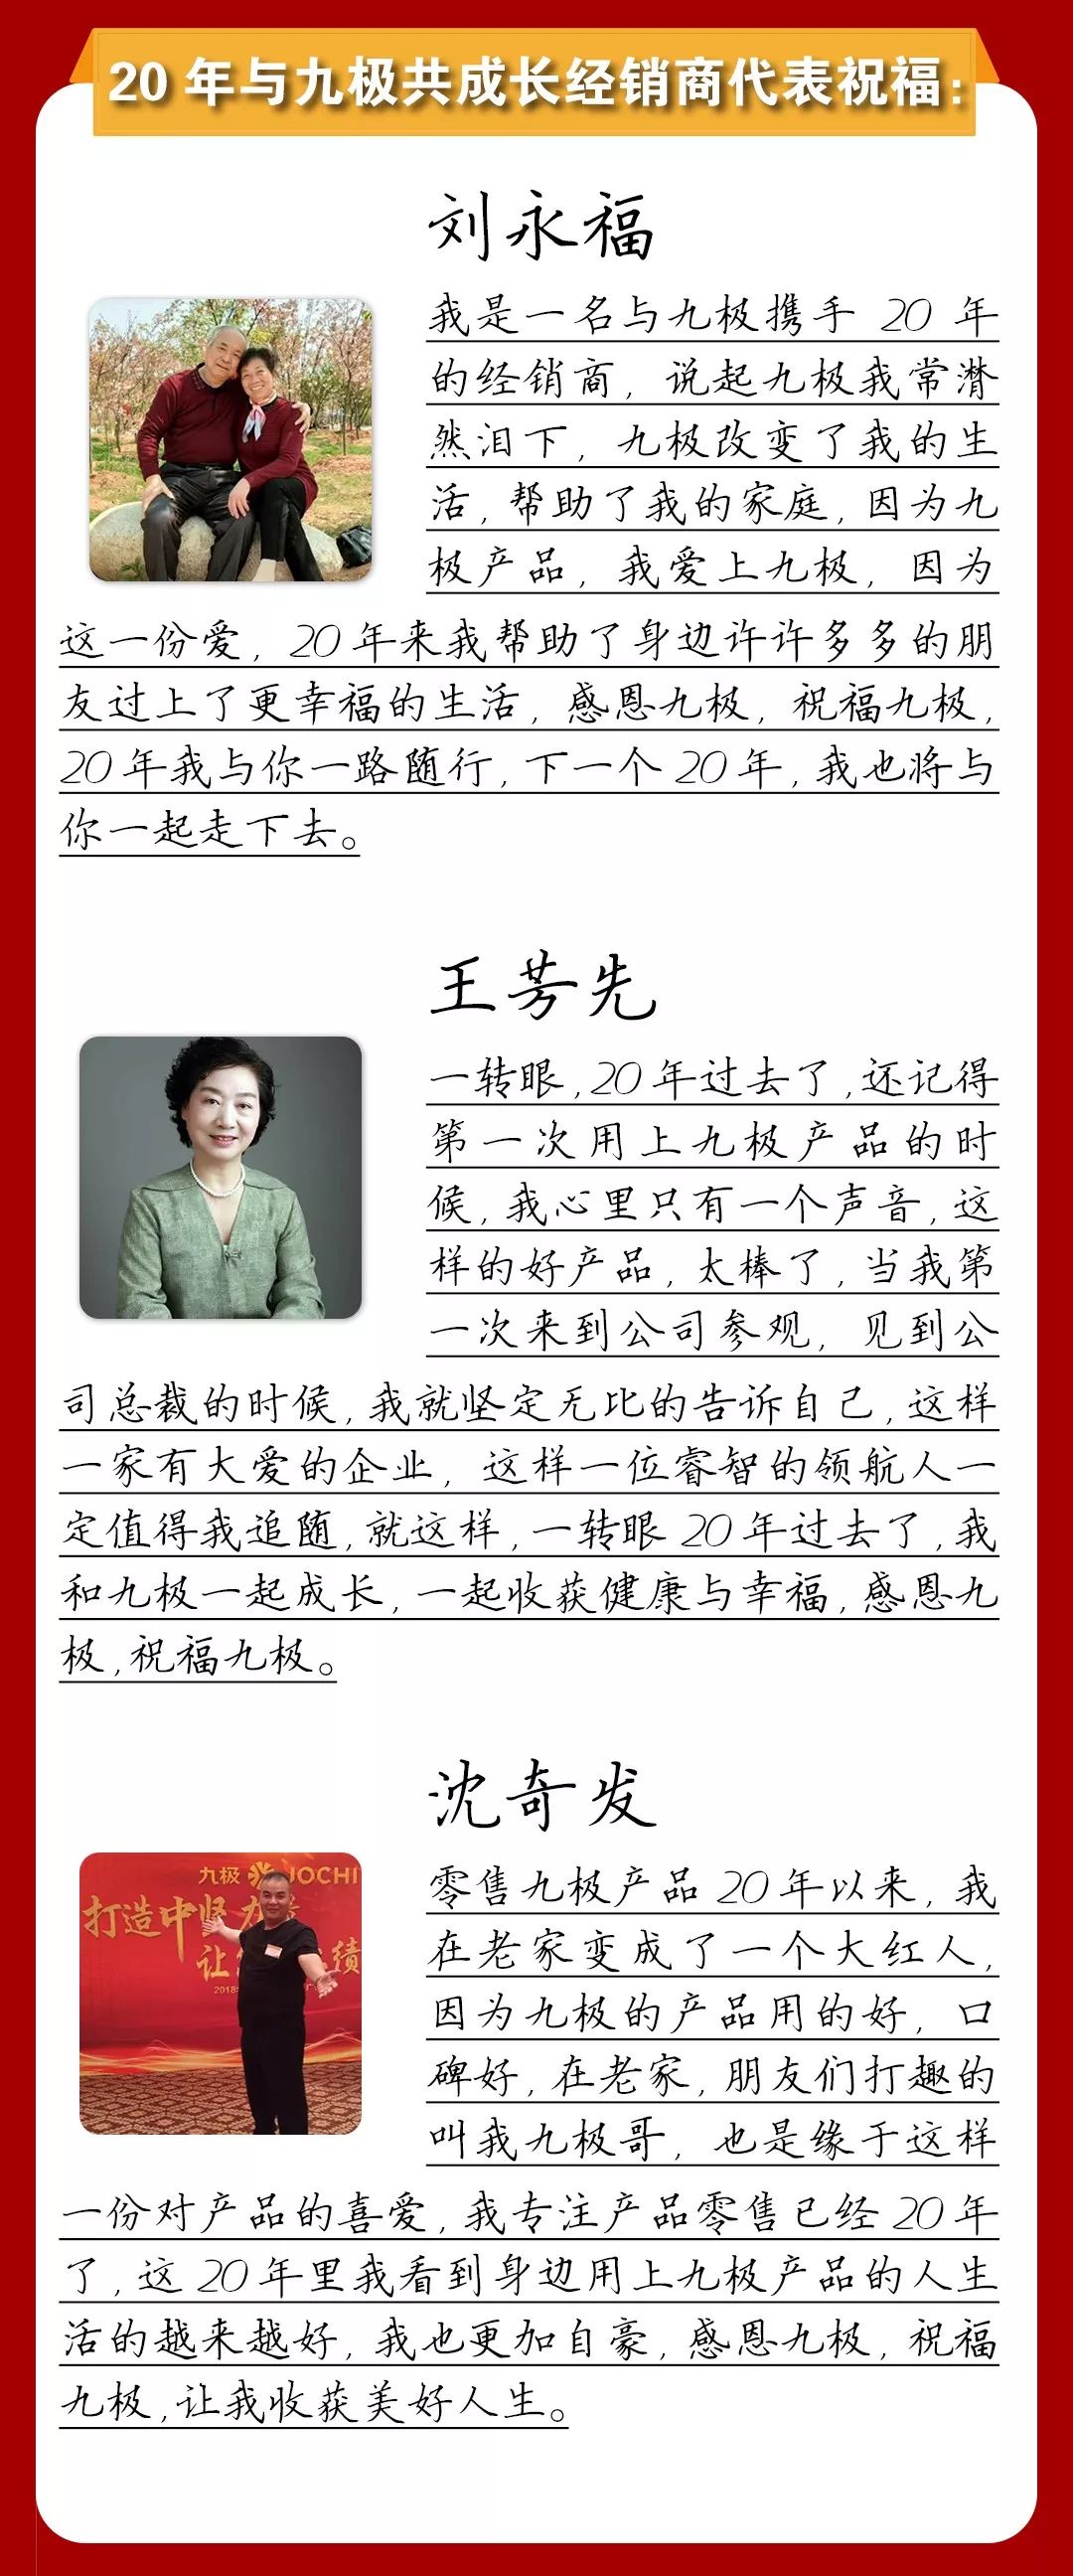 20 年与九极共成长经销商代表祝福：
刘永福
我是一名与九极携手 20 年
的经销商，说起九极我常潸
然泪下，九极改变了我的生
活，帮助了我的家庭，因为九
极产品，我爱上九极，因为
这一份爱，20年来我帮助了身边许许多多的朋
友过上了更幸福的生活，感恩九极，祝福九极，
20年我与你一路随行，下一个20年，我也将与
你一起走下去。
王芳先
一转眼，20年过去了，还记得
第一次用上九极产品的时
候，我心里只有一个声音，这
样的好产品，太棒了，当我第
一次来到公司参观，见到公
司总裁的时候，我就坚定无比的告诉自己，这样
一家有大爱的企业，这样一位睿智的领航人一
定值得我追随，就这样，一转眼20年过去了，我
和九极一起成长，一起收获健康与幸福，感恩九
极，祝福九极。
沈奇发
九极 JOCHI
打造中坚力
让
绩
2018
零售九极产品20年以来，我
在老家变成了一个大红人，
因为九极的产品用的好，口
碑好，在老家，朋友们打趣的
叫我九极哥，也是缘于这样
一份对产品的喜爱，我专注产品零售已经20年
了，这20年里我看到身边用上九极产品的人生
活的越来越好，我也更加自豪，感恩九极，祝福
九极，让我收获美好人生。